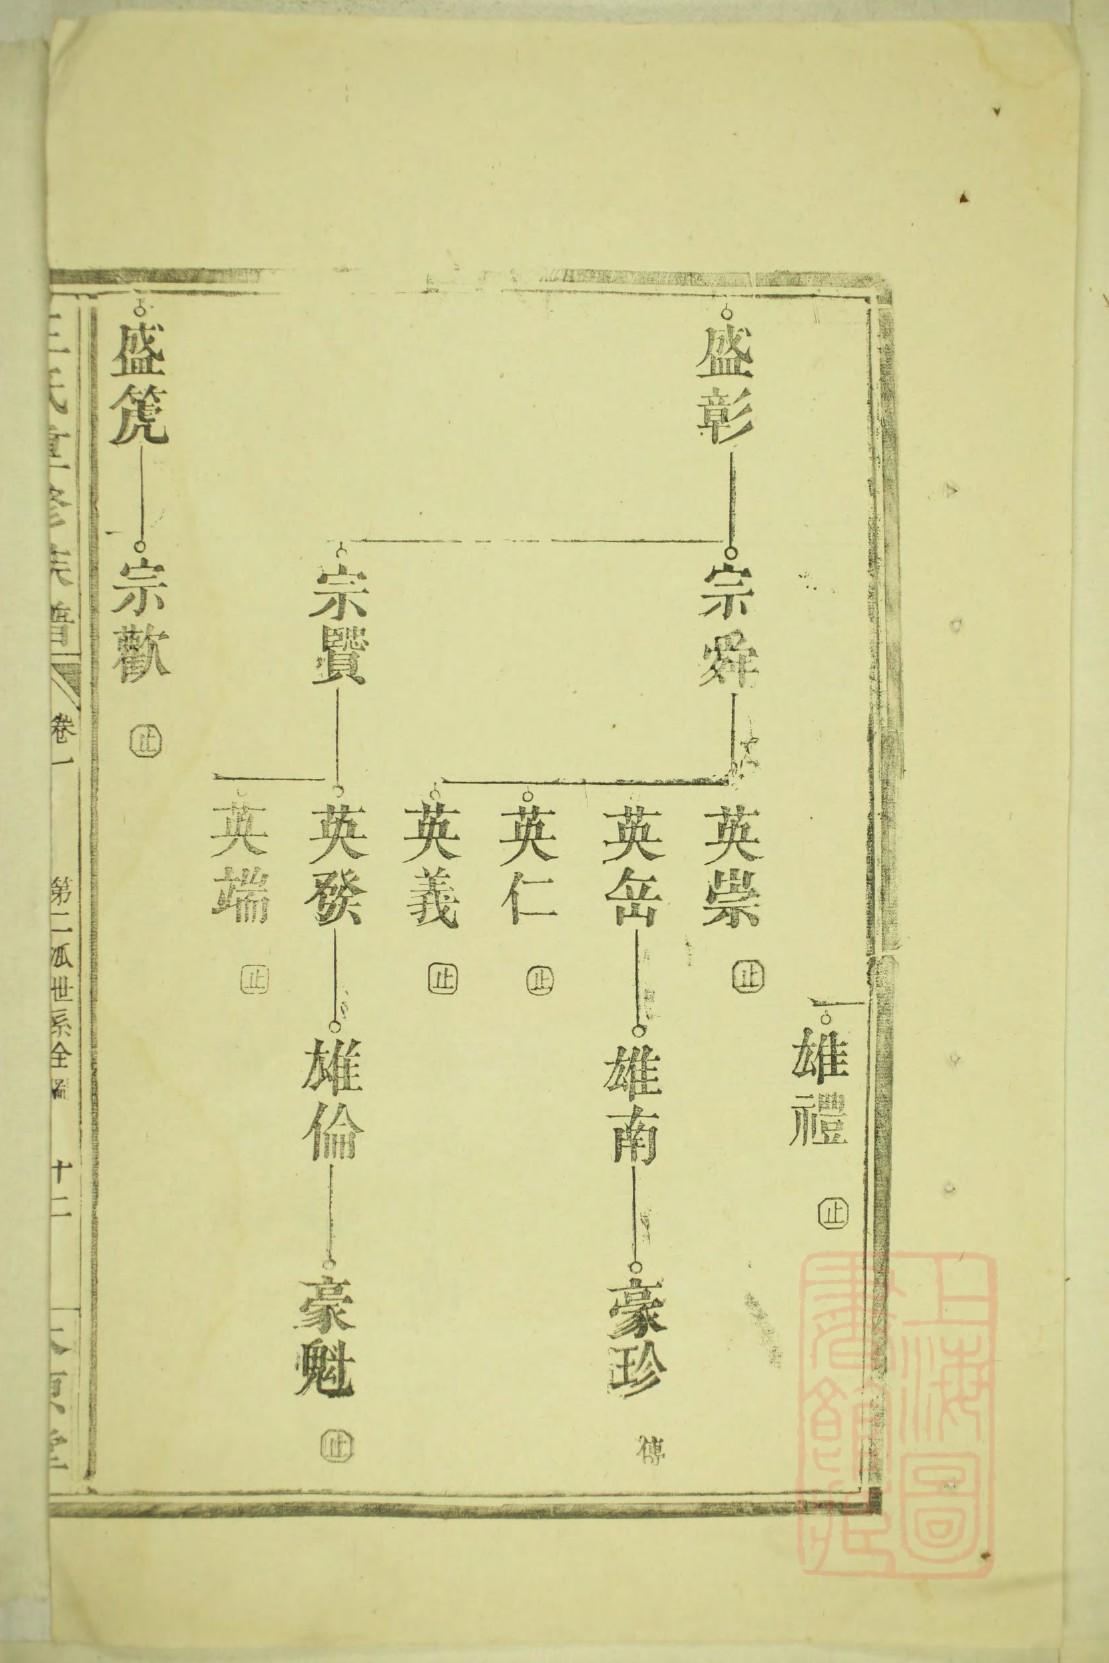 雄禮
止
盛彰
宗舜
英崇
止
英岳
雄南
豪珍
傳
英仁
止
英義
止
宗賢
英發
雄倫
豪魁
止
英端
止
盛箎
宗歡
止
王氏重修族譜
卷一
第二派世系全圖
十二
太原堂
上海圖
書館藏